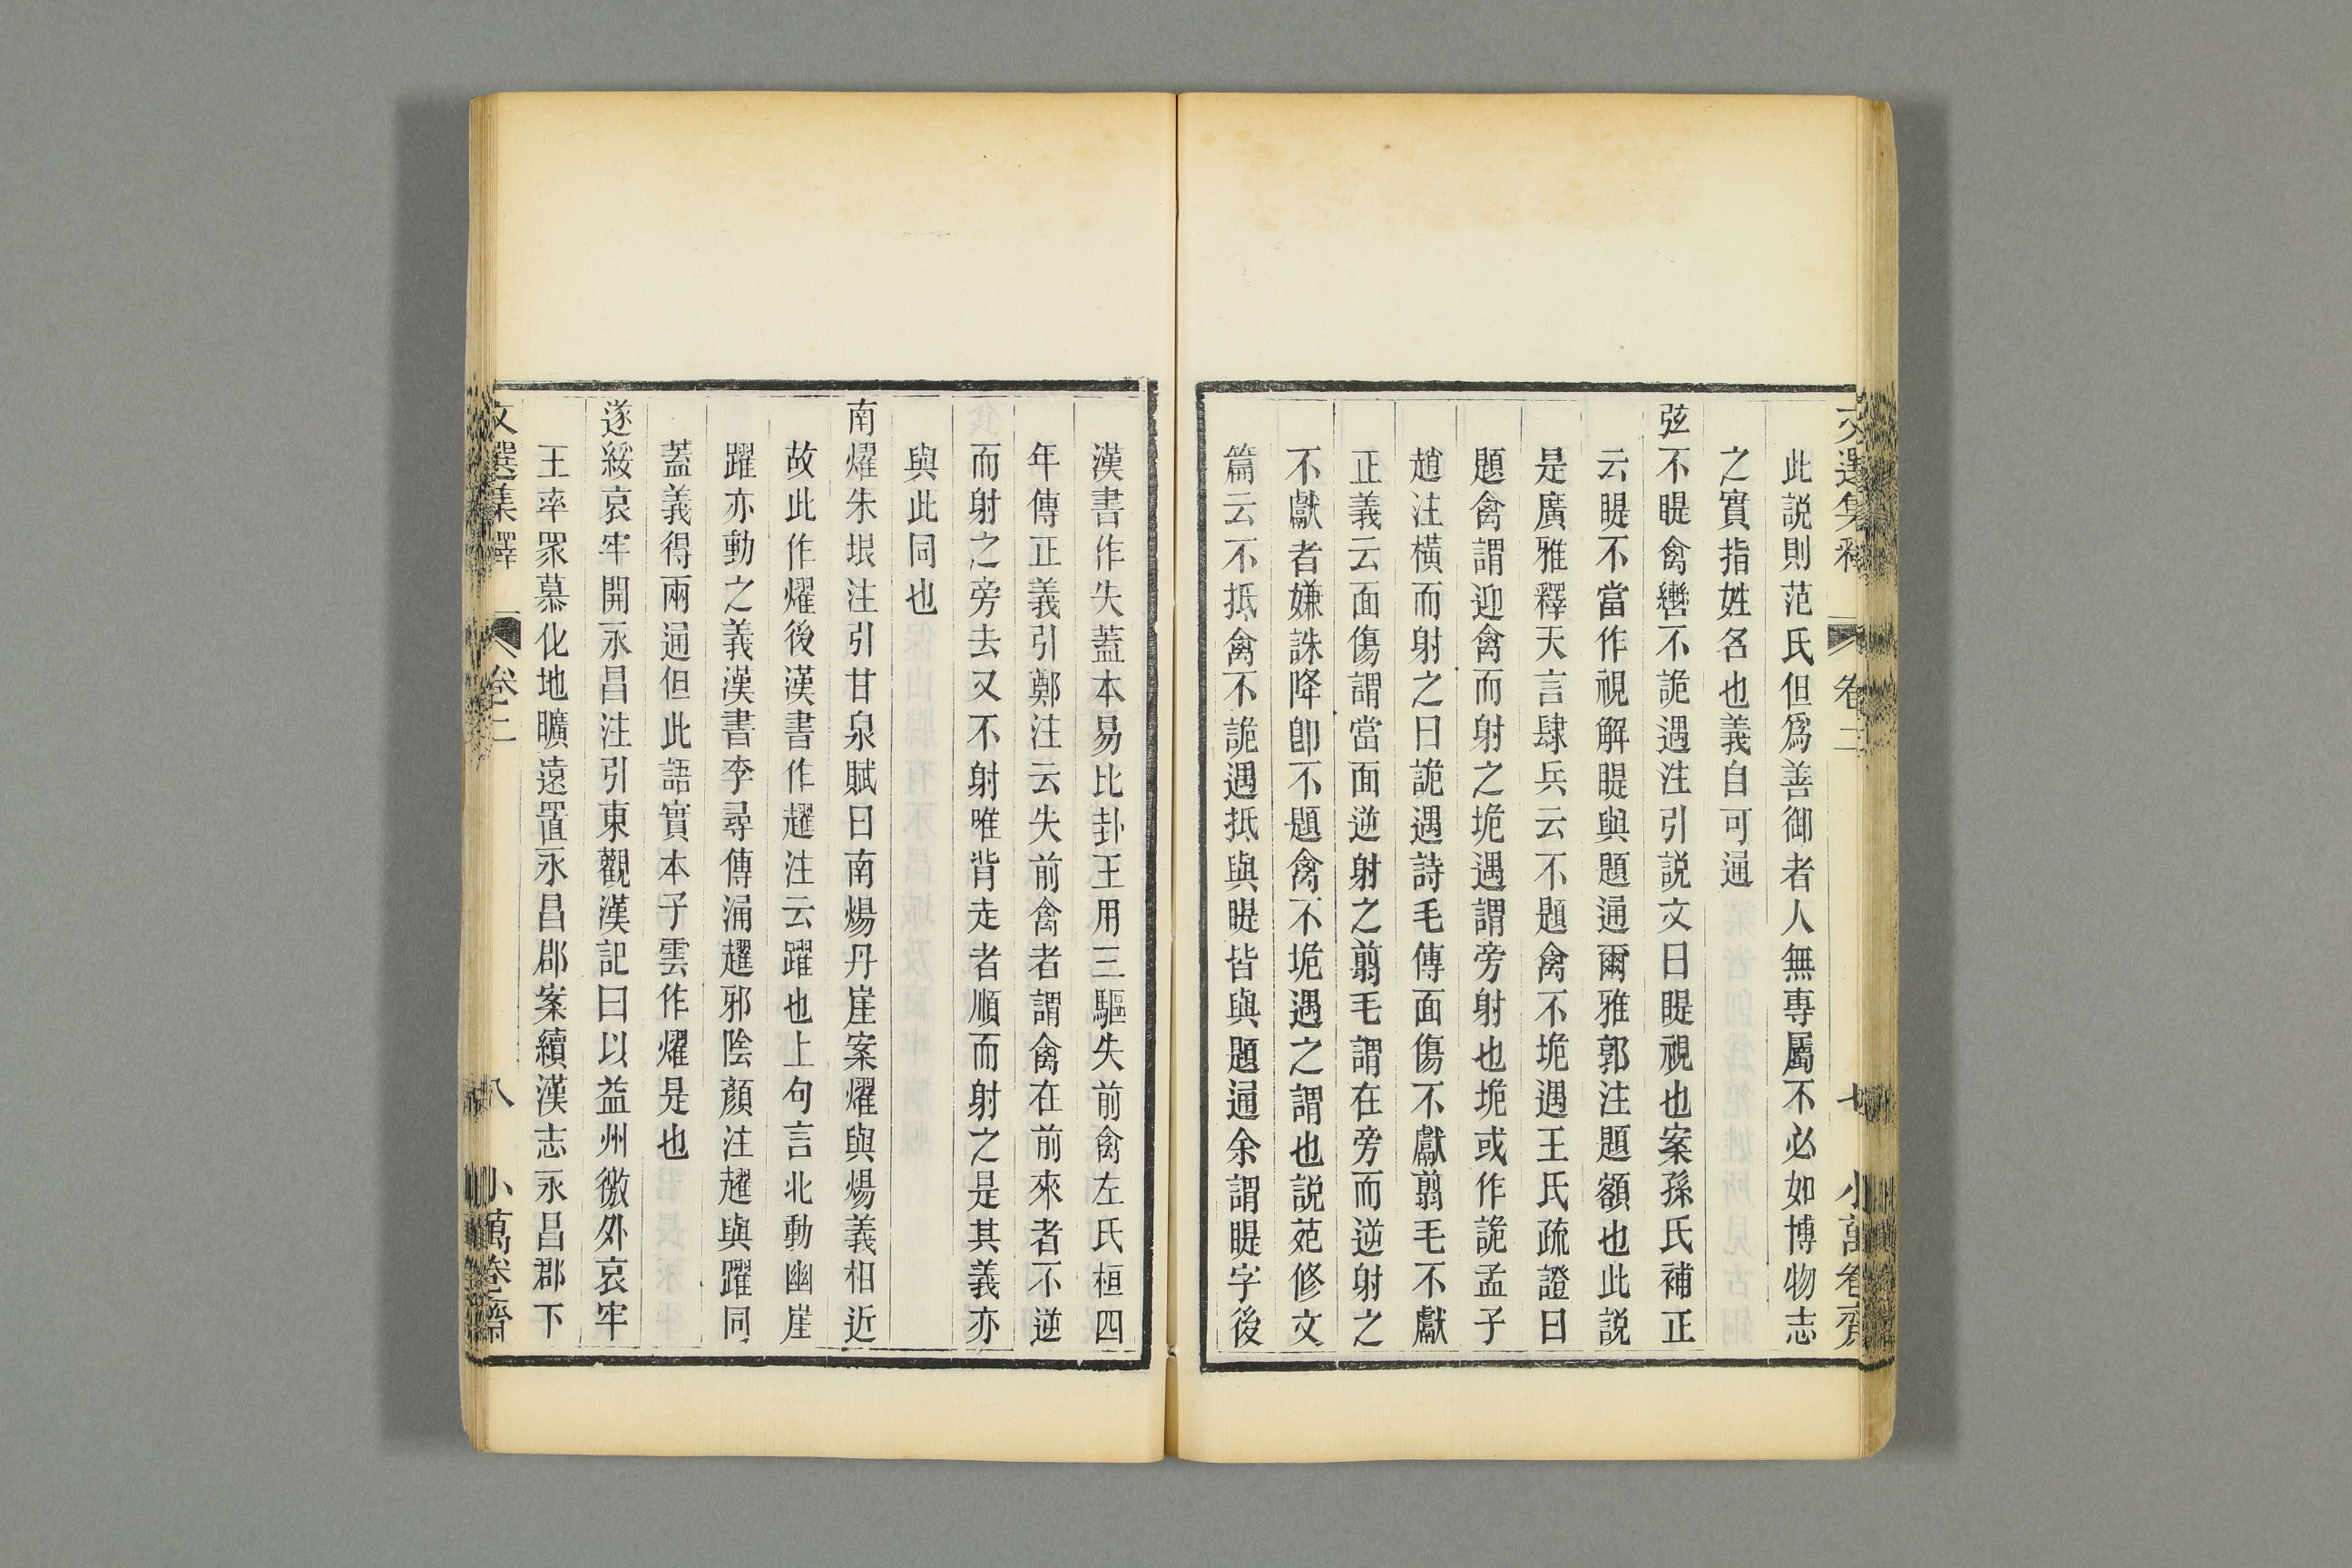 文選集釋 卷二 七 小萬卷齋
此説則范氏但爲善御者人無專屬不必如博物志
之實指姓名也義自可通
弦不睼禽轡不詭遇注引説文曰睼視也案孫氏補正
云睼不當作視解睼與題通爾雅郭注題額也此説
是廣雅釋天言肆兵云不題禽不垝遇王氏疏證曰
題禽謂迎禽而射之垝遇謂旁射也垝或作詭孟子
趙注橫而射之曰詭遇詩毛傳面傷不獻翦毛不獻
正義云面傷謂當面逆射之翦毛謂在旁而逆射之
不獻者嫌誅降卽不題禽不垝遇之謂也説苑修文
篇云不抵禽不詭遇抵與睼皆與題通余謂睼字後
漢書作失蓋本易比卦王用三驅失前禽左氏桓四
年傳正義引鄭注云失前禽者謂禽在前來者不逆
而射之旁去又不射唯背走者順而射之是其義亦
與此同也
南燿朱垠注引甘泉賦曰南煬丹崖案燿與煬義相近
故此作燿後漢書作趯注云躍也上句言北動幽崖
躍亦動之義漢書李尋傳涌趯邪陰顏注趯與躍同
蓋義得兩通但此語實本子雲作燿是也
遂綏哀牢開永昌注引東觀漢記曰以益州徼外哀牢
王率眾慕化地曠遠置永昌郡案續漢志永昌郡下
文選集釋 卷二 八 小萬卷齋